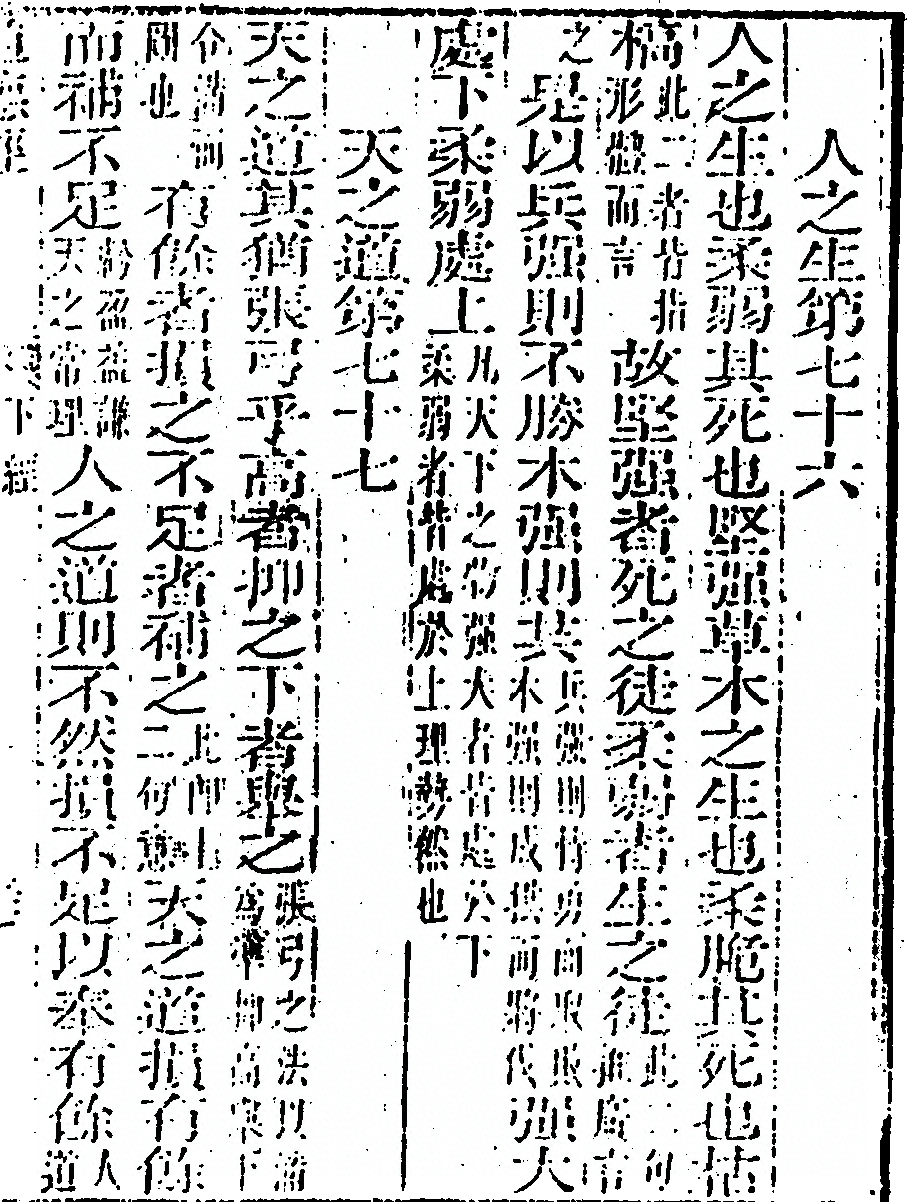 人之生第七十六
人之生也柔弱其死也堅强草木之生也柔脆其死也枯
槁此二者皆指形體而言故堅强者死之徒柔弱者生之徒此二句
之是以兵强則不勝木强則共兵强則恃勇而取敗木强則成拱而將伐强大
處下柔弱處上凡天下之物强大者皆處於下柔弱者皆處於上理勢然也
天之道第七十七
天之道其猶張弓乎高者抑之下者舉之張引之法以滿爲準抑高舉下
令滿而間也有餘者損之不足者補之此二句天之道損有餘
而補不足虧盈益謙天之常理人之道則不然損不足以奉有餘人道
下經